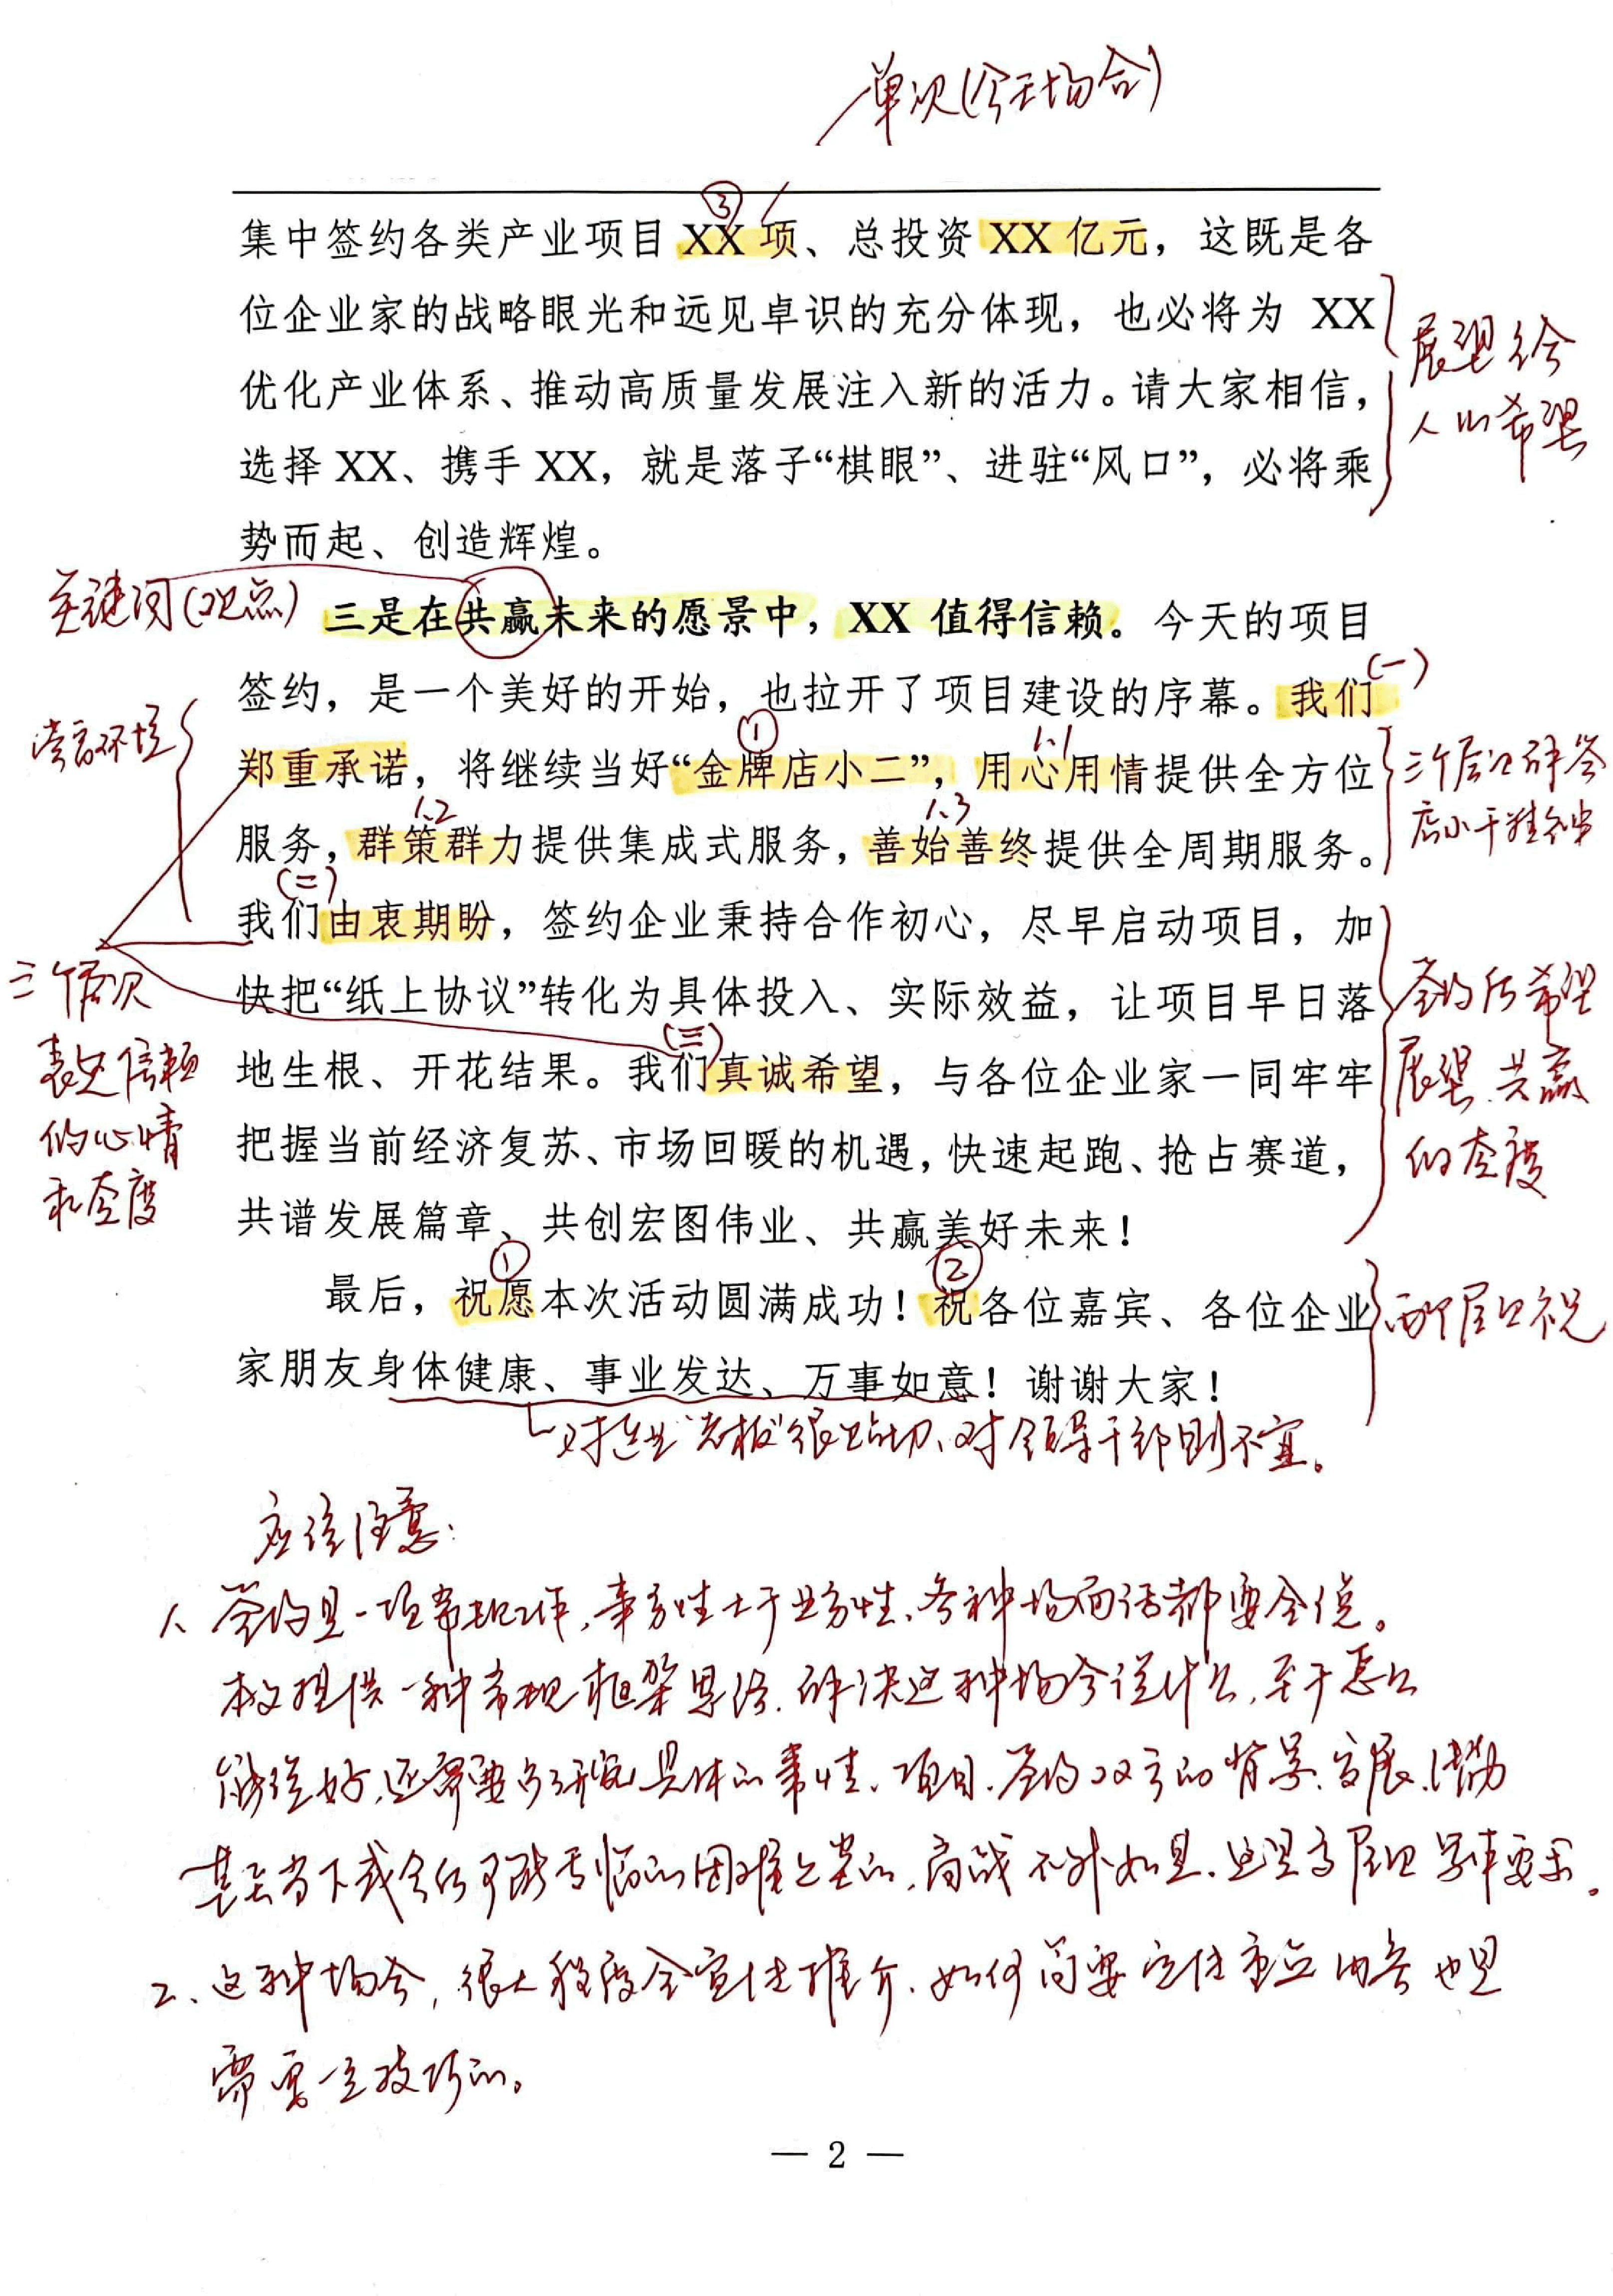 单次(今天场合)
③
集中签约各类产业项目 XX 项、总投资 XX 亿元，这既是各
位企业家的战略眼光和远见卓识的充分体现，也必将为 XX
优化产业体系、推动高质量发展注入新的活力。请大家相信，
选择 XX、携手 XX，就是落子“棋眼”、进驻“风口”，必将乘
势而起、创造辉煌。
展望给
人以希望
关键词(观点)
三是在共赢未来的愿景中，XX 值得信赖。今天的项目
(一)
签约，是一个美好的开始，也拉开了项目建设的序幕。我们
营商环境
① 1.1
郑重承诺，将继续当好“金牌店小二”，用心用情提供全方位
1.2 1.3
服务，群策群力提供集成式服务，善始善终提供全周期服务。
三个层次
(二)
我们由衷期盼，签约企业秉持合作初心，尽早启动项目，加
快把“纸上协议”转化为具体投入、实际效益，让项目早日落
(三)
地生根、开花结果。我们真诚希望，与各位企业家一同牢牢
把握当前经济复苏、市场回暖的机遇，快速起跑、抢占赛道，
共谱发展篇章、共创宏图伟业、共赢美好未来！
三个层次
表达信赖
的心情
和态度
签约后希望
展望、共赢
的态度
① ②
最后，祝愿本次活动圆满成功！祝各位嘉宾、各位企业
家朋友身体健康、事业发达、万事如意！谢谢大家！
两个层次祝
对企业“老板”很贴切、对领导干部则不宜。
应该注意：
1、签约是一项常规工作，事务性大于业务性、各种场面话都要会说。
本文提供一种常规框架思路，解决这种场合说什么，至于怎么
能说好，还需要多研究具体的事情、项目、签约双方的背景、发展、优势
甚至当下或今后可能面临的困难之类的，商战不外如是，这是高层次写作要求。
2、这种场合，很大程度会宣传推介，如何简要宣传重点内容也是
需要一定技巧的。
— 2 —